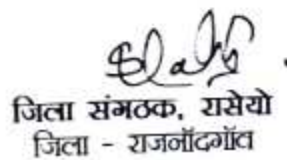 जिला संगठक, रासेयो
जिला - राजनाँदगाँव